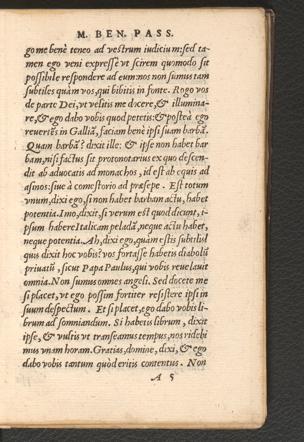 M. BEN. PASS.
go me benè teneo ad vestrum iudicium: sed ta-
men ego veni expressè vt scirem quomodo sit
possibile respondere ad eum: nos non sumus tam
subtiles quàm vos, qui bibitis in fonte. Rogo vos
de parte Dei, vt velitis me docere, & illumina-
re, & ego dabo vobis quod petetis: & posteà ego
reuertēs in Galliā, faciam benè ipsi suam barbā.
Quam barbā? dixit ille: & ipse non habet bar
bam, nisi factus sit protonotarius ex quo descen-
dit ab aduocatis ad monachos, id est ab equis ad
asinos: siue à comestorio ad præsepe. Est totum
vnum, dixi ego, si non habet barbam actu, habet
potentia. Imo, dixit, si verum est quod dicunt, i-
psum habere Italicam peladā, neque actu habet,
neque potentia. Ah, dixi ego, quàm estis subtilis!
quis dixit hoc vobis? vos fortasse habetis diabolū
priuatū, sicut Papa Paulus, qui vobis reuelauit
omnia. Non sumus omnes angeli. Sed docete me
si placet, vt ego possim fortiter resistere ipsi in
suum despectum. Et si placet, ego dabo vobis li-
brum ad somniandum. Si habetis librum, dixit
ipse, & vultis vt transeamus tempus, nos ridebi
mus vnam horam. Gratias, domine, dixi, & ego
dabo vobis tantum quòd eritis contentus. Non
A 5